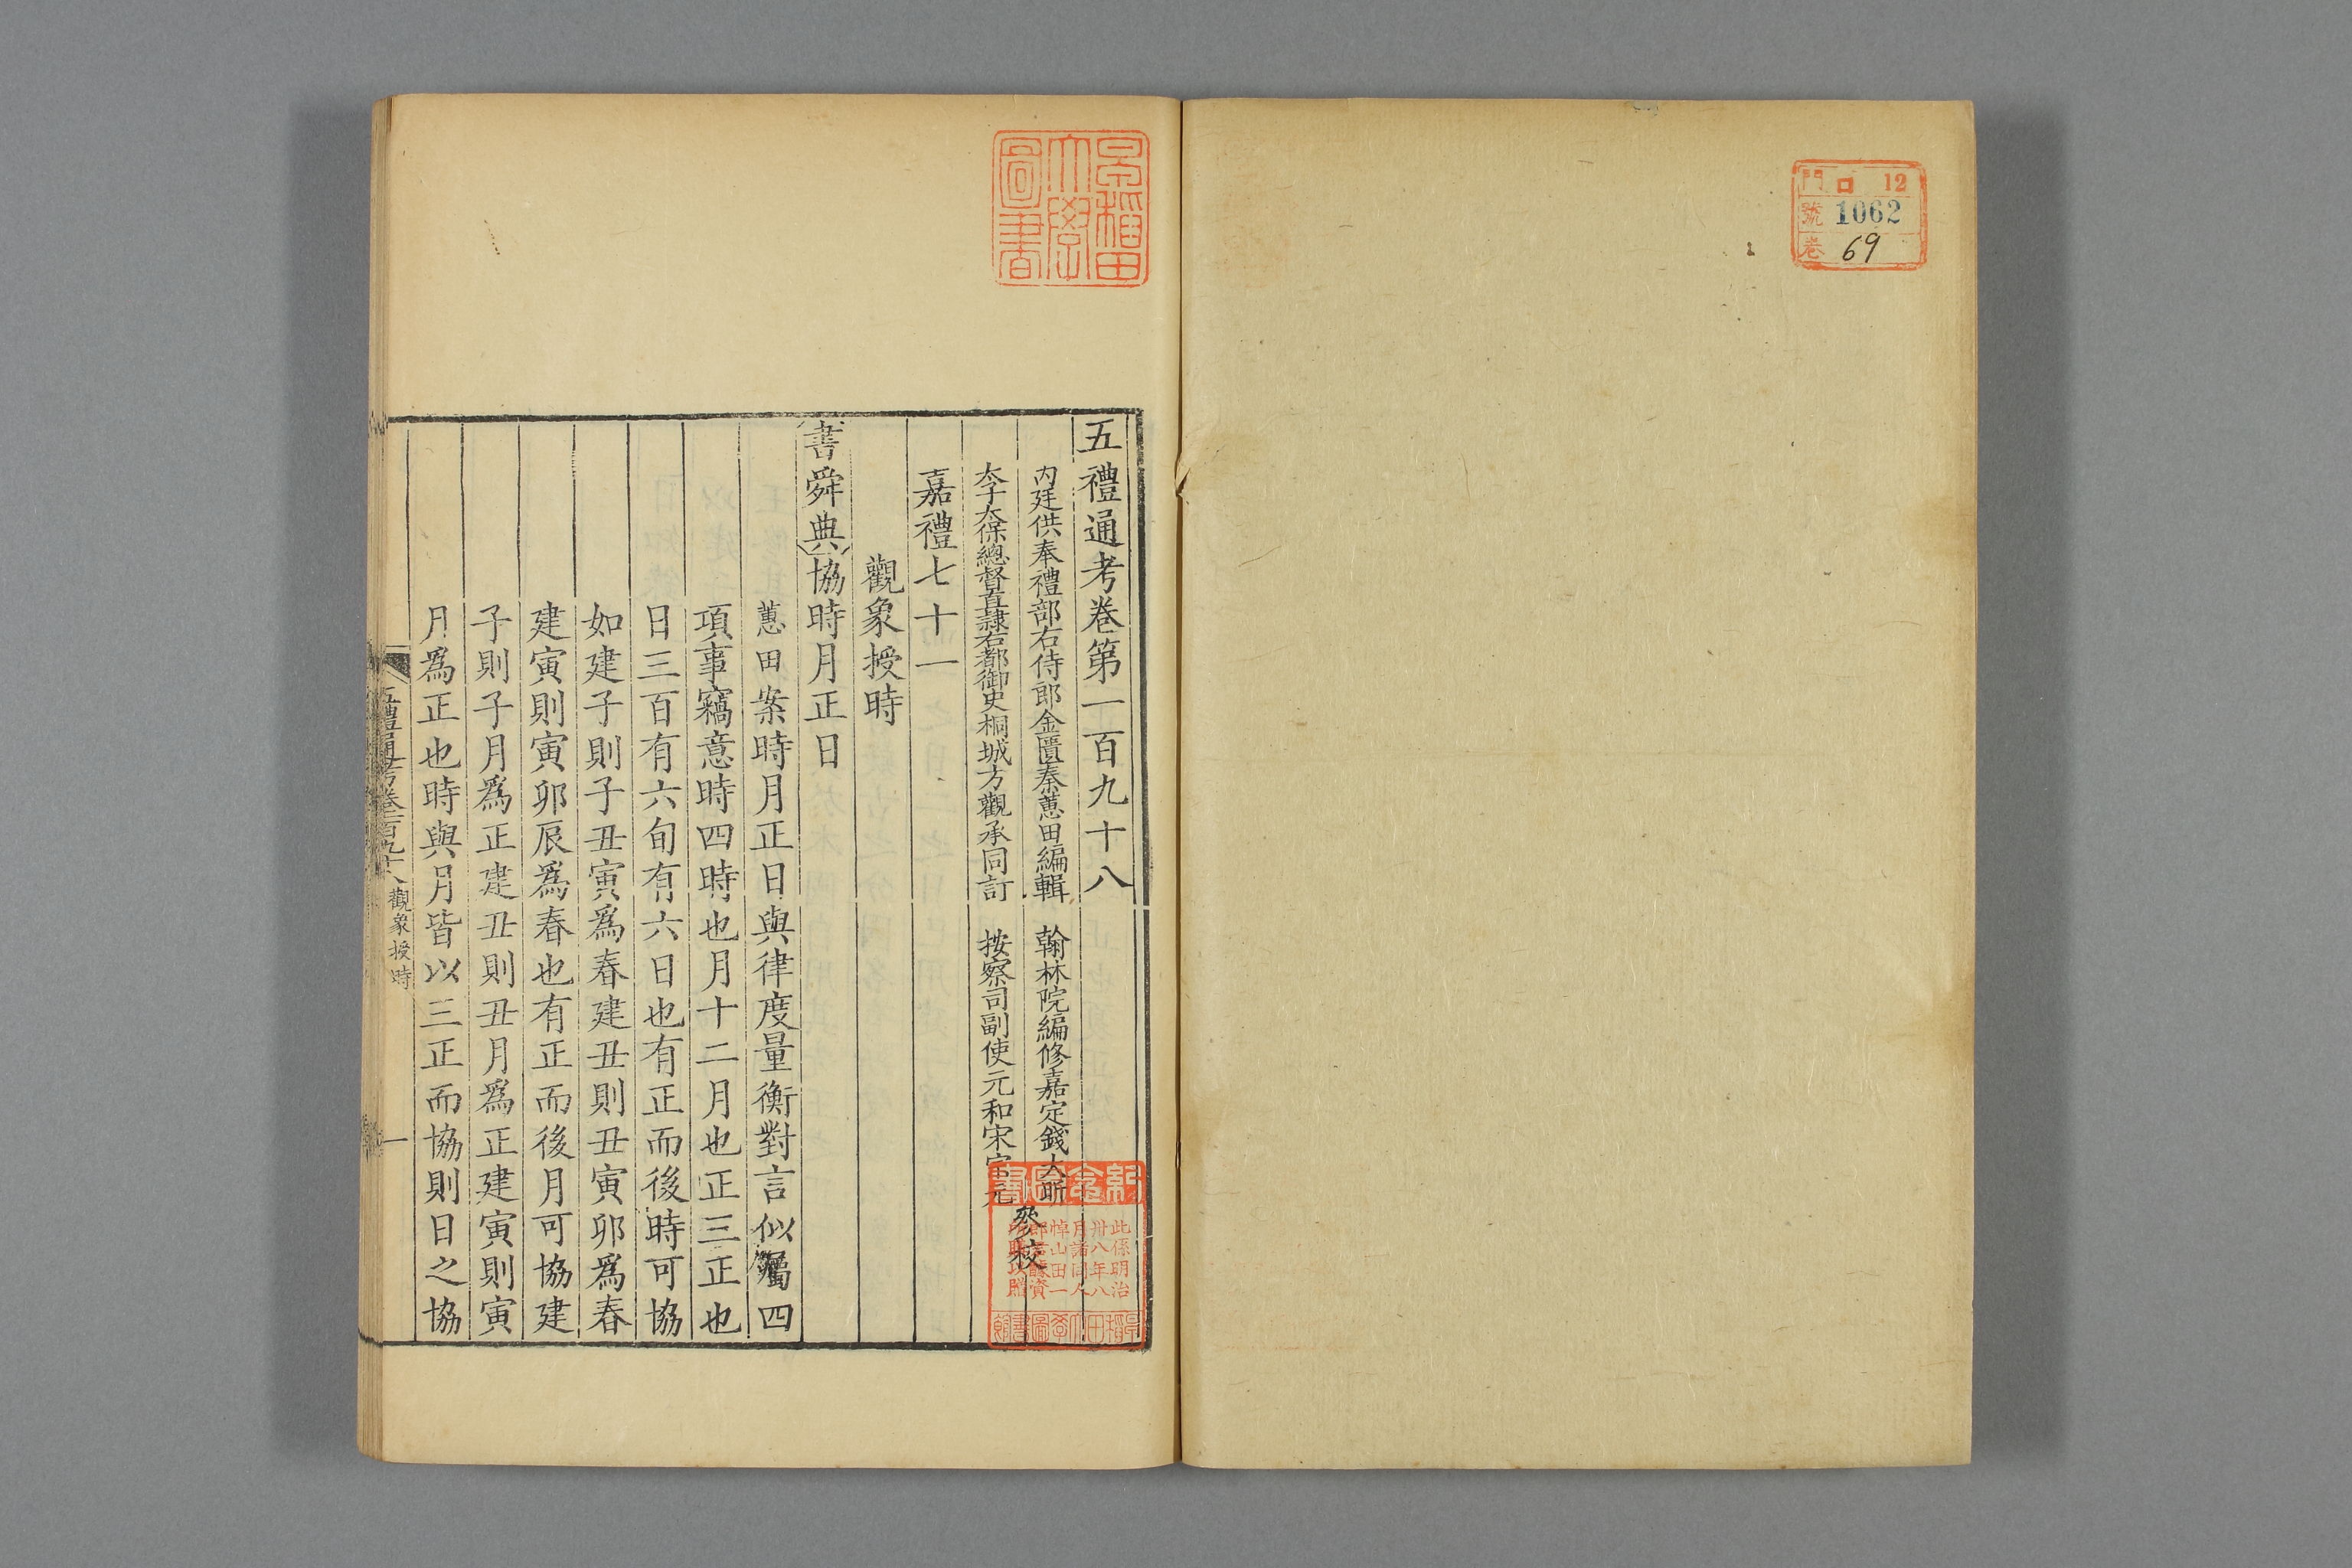 門 口 12
號 1062
卷 69
早稲田
大學
圖書
五禮通考卷第一百九十八
内廷供奉禮部右侍郎金匱秦蕙田編輯 翰林院編修嘉定錢大昕
太子太保總督直隷右都御史桐城方觀承同訂 按察司副使元和宋宗元
參校
嘉禮七十一
觀象授時
書舜典協時月正日
蕙田案時月正日與律度量衡對言似屬四
項事竊意時四時也月十二月也正三正也
日三百有六旬有六日也有正而後時可協
如建子則子丑寅爲春建丑則丑寅卯爲春
建寅則寅卯辰爲春也有正而後月可協建
子則子月爲正建丑則丑月爲正建寅則寅
月爲正也時與月皆以三正而協則日之協
五禮通考卷一百九十八 觀象授時
一
紀念圖書
此係明治
卅八年八
月諸同人
悼山田一
早稲田大學圖書館